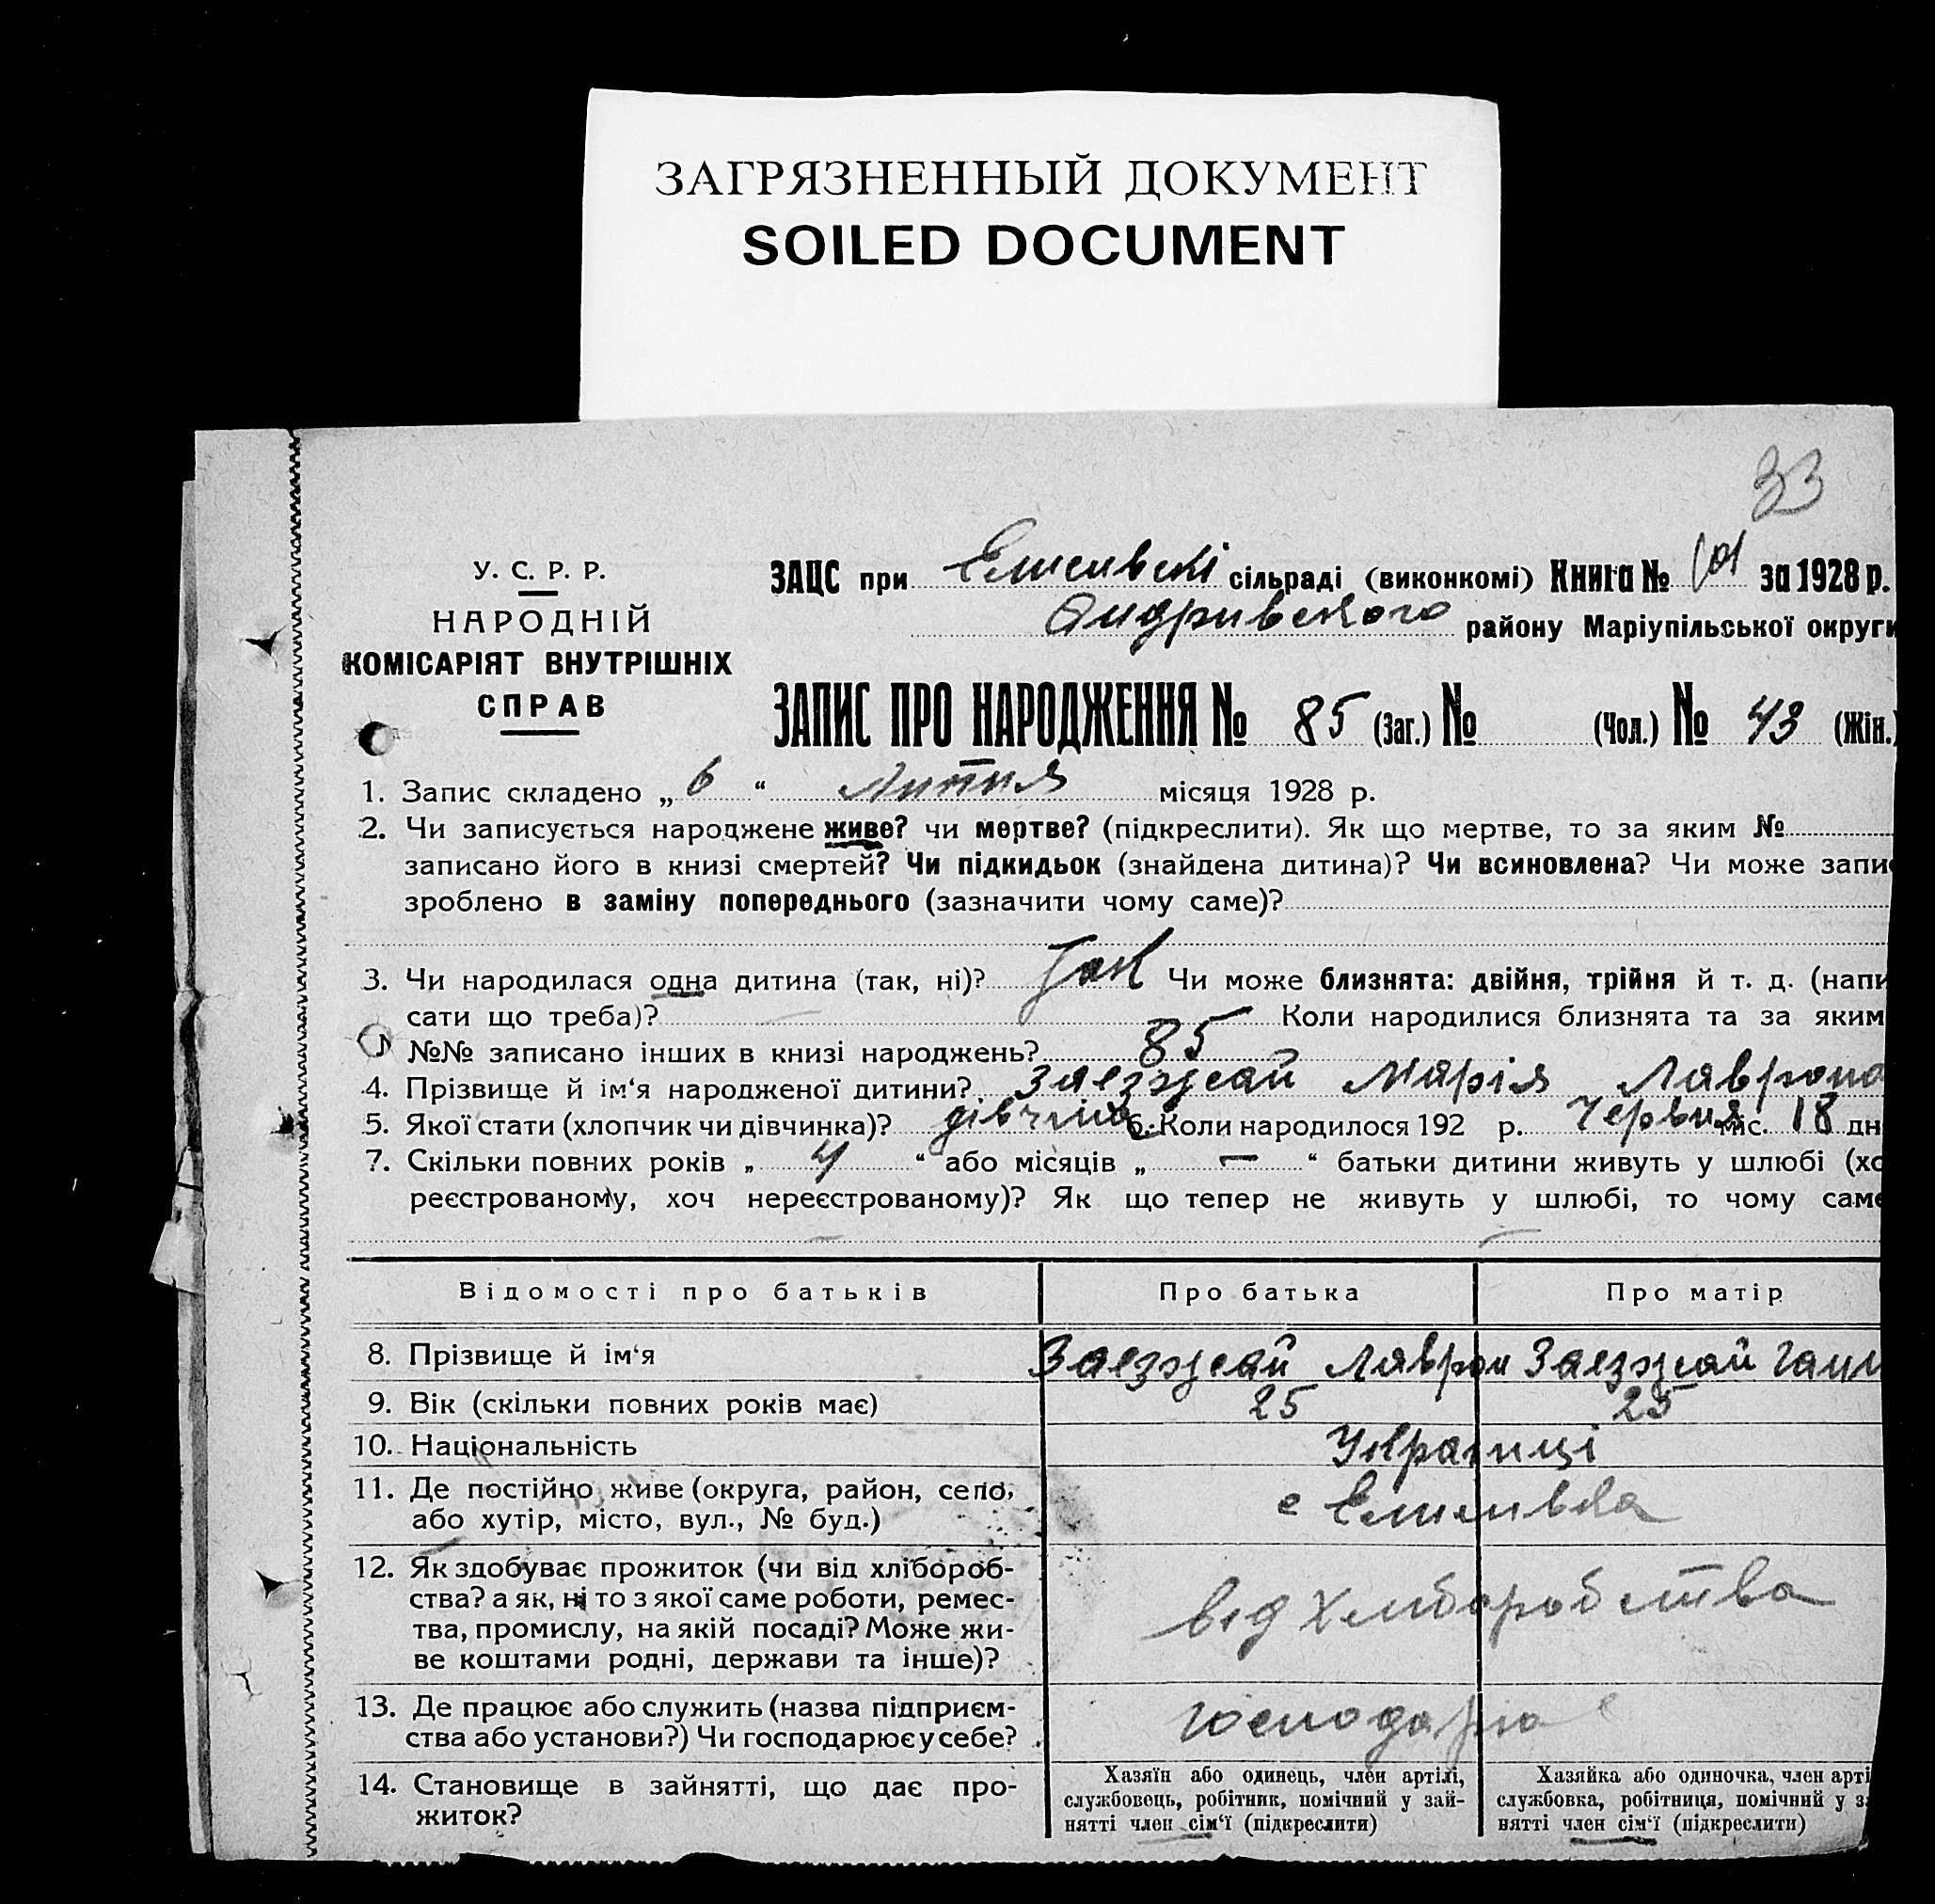 ЗАГРЯЗНЕННЫЙ ДОКУМЕНТ
SOILED DOCUMENT
33
У. С. Р. Р.
НАРОДНІЙ
КОМІСАРІЯТ ВНУТРІШНІХ
СПРАВ
ЗАЦС при Елисивскі сільраді (виконкомі) Книга № за 1928 р.
Андривського району Маріупільської округи
ЗАПИС ПРО НАРОДЖЕННЯ № 85 (Заг.) № (Чол.) № 43 (Жін.)
1. Запис складено „ 6 “ Липня місяця 1928 р.
2. Чи записується народжене живе? чи мертве? (підкреслити). Як що мертве, то за яким №
записано його в книзі смертей? Чи підкидьок (знайдена дитина)? Чи всиновлена? Чи може запис
зроблено в заміну попереднього (зазначити чому саме)?
3. Чи народилася одна дитина (так, ні)? Так Чи може близнята: двійня, трійня й т. д. (напи
сати що треба)? Коли народилися близнята та за яким
№№ записано інших в книзі народжень? 85
4. Прізвище й ім‘я народженої дитини? Заезжай Марія Лаврона
5. Якої стати (хлопчик чи дівчинка)? дівчина 6. Коли народилося 192 р. Червня міс. 18 дн
7. Скільки повних років „ 4 “ або місяців „ — “ батьки дитини живуть у шлюбі (хо
реєстрованому, хоч нереєстрованому)? Як що тепер не живуть у шлюбі, то чому саме
Відомості про батьків Про батька Про матір
8. Прізвище й ім‘я Заезжай Лаврон Заезжай Ганн
9. Вік (скільки повних років має) 25 25
10. Національність Украінці
11. Де постійно живе (округа, район, село, с Елисивка
або хутір, місто, вул., № буд.)
12. Як здобуває прожиток (чи від хлібороб-
ства? а як, ні то з якої саме роботи, ремес- від Хліборобства
тва, промислу, на якій посаді? Може жи-
ве коштами родні, держави та інше)?
13. Де працює або служить (назва підприєм- господарює
ства або установи?) Чи господарює у себе?
14. Становище в зайнятті, що дає про-
житок?
Хазяїн або одинець, член артілі,
службовець, робітник, помічний у зай-
нятті член сім‘ї (підкреслити)
Хазяйка або одиночка, член арті
службовка, робітниця, помічний у за
нятті член сім‘ї (підкреслити)